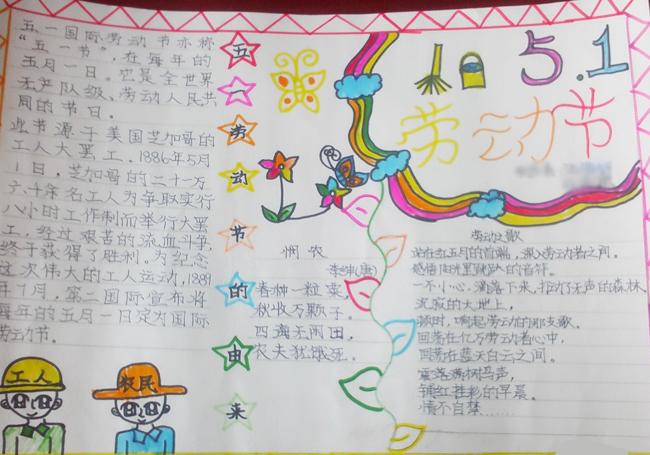 五一国际劳动节亦称
“五一节”，在每年的
五月一日。它是全世界
无产队级、劳动人民共
同的节日。
此节源于美国芝加哥的
工人大罢工。1886年5月
1日，芝加哥的二十一万
六千余名工人为争取实行
八小时工作制而举行大罢
工，经过艰苦的流血斗争，
终于获得了胜利。为纪念
这次伟大的工人运动，1889
年7月，第二国际宣布将
每年的五月一日定为国际
劳动节。
工人
农民
五一劳动节的由来
5.1
劳动节
悯农
李绅(唐)
春种一粒粟，
秋收万颗子。
四海无闲田，
农夫犹饿死。
劳动之歌
站在红五月的首端，深入劳动者之间。
感悟阳光里跳跃的音符。
一不小心，滴落下来，打动了无声的森林、
沉寂的大地上，
顿时，响起劳动的那支歌。
回荡在亿万劳动者心中，
回荡在蓝天白云之间。
震落满树鸟声，
铺红挂彩的早晨。
情不自禁……